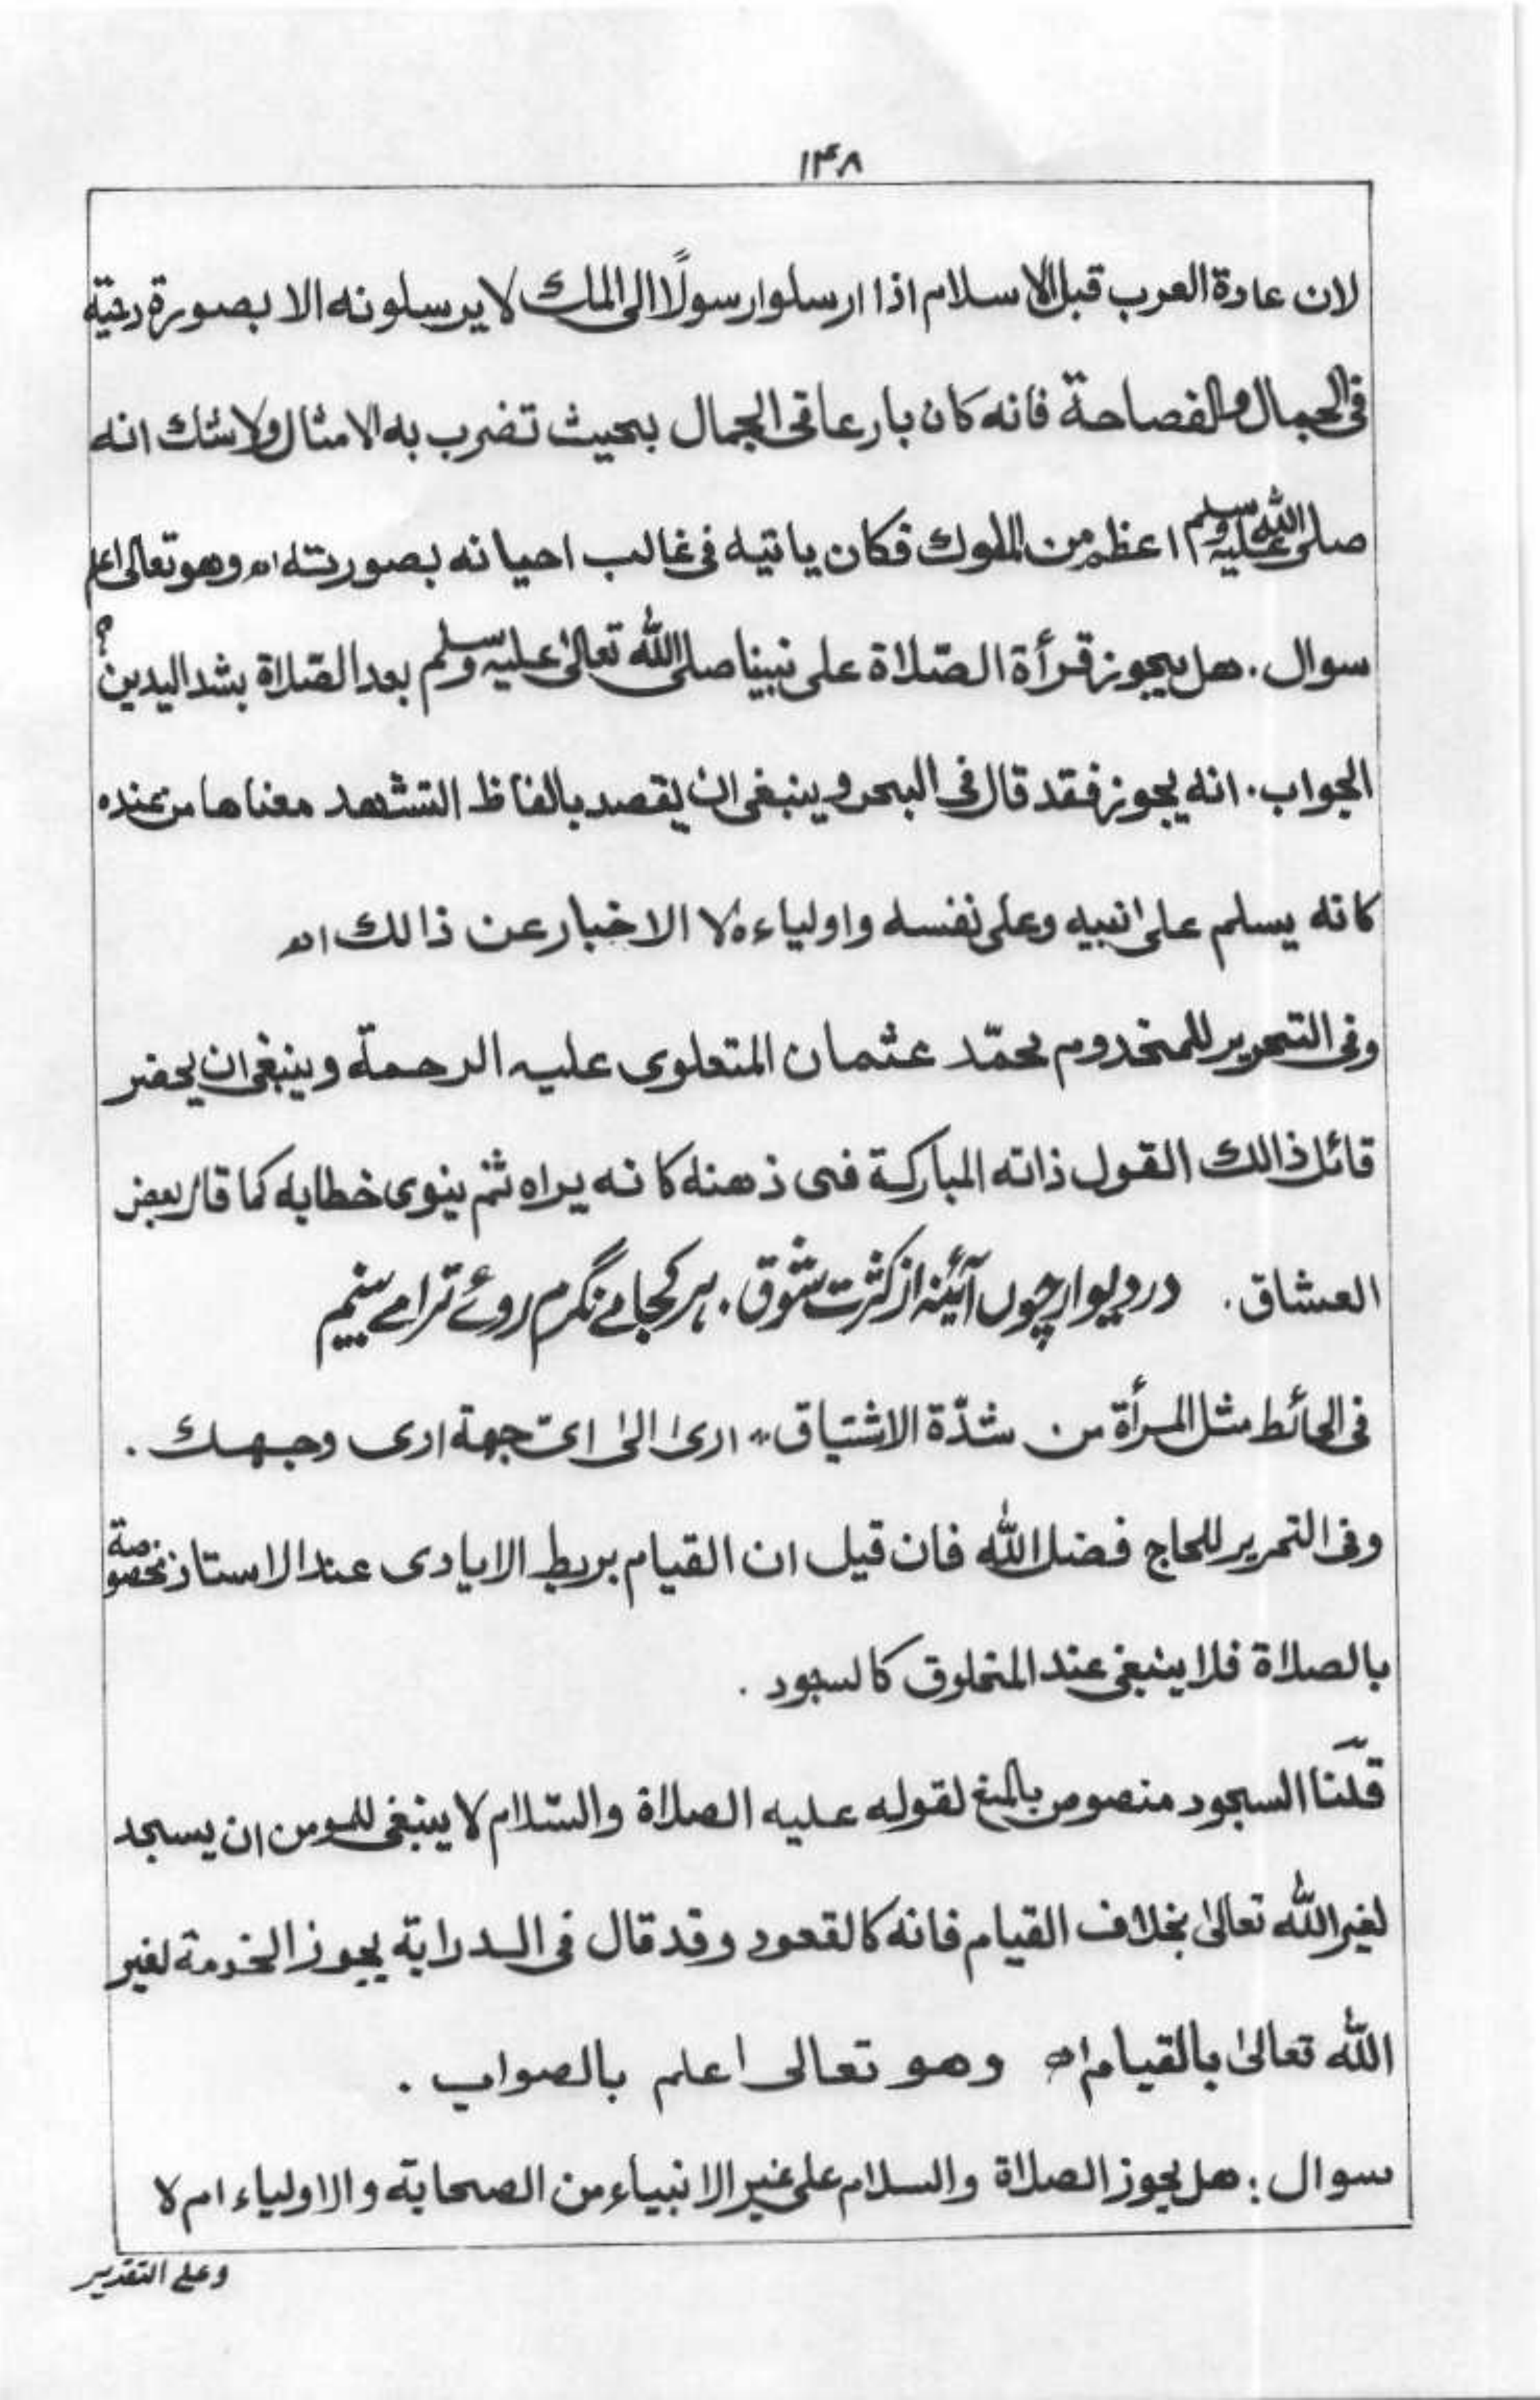 ۱۴۸
لان عادة العرب قبل الاسلام اذا ارسلوا رسولًا الى الملك لا يرسلونه الا بصورة دحية
فى الجمال والفصاحة فانه كان بارعا فى الجمال بحيث تضرب به الامثال ولا شك انه
صلى الله عليه وسلم اعظم من الملوك فكان ياتيه فى غالب احيانه بصورته اھ وهو تعالى اعلم
سوال. هل يجوز قرأة الصّلاة على نبينا صلى الله تعالىٰ عليه وسلم بعد الصّلاة بشد اليدين؟
الجواب. انه يجوز فقد قال فى البحر وينبغى ان يقصد بالفاظ التشهد معناها من عنده
كانه يسلم على انبيه وعلى نفسه واولياءه لا الاخبار عن ذالك اھ
وفى التحرير للمخدوم محمّد عثمان المتعلوى عليه الرحمة وينبغى ان يحضر
قائل ذالك القول ذاته المباركة فى ذهنه كانه يراه ثم ينوى خطابه كما قال بعض
العشاق. در دیوار چوں آئینہ از کثرت شوق. ہر کجا مے نگرم روئے ترا مے بینم
فى الحائط مثل المرأة من شدّة الاشتياق، ارىٰ الىٰ اىّ جهة ارى وجهك.
وفى التحرير للحاج فضل الله فان قيل ان القيام بربط الايادى عند الاستاذ مخصوصة
بالصلاة فلا ينبغى عند المخلوق كالسجود.
قلنا السجود منصوص بالمنع لقوله عليه الصلاة والسّلام لا ينبغى للمومن ان يسجد
لغير الله تعالىٰ بخلاف القيام فانه كالقعود وقد قال فى الدراية يجوز الخدمة لغير
الله تعالىٰ بالقيام اھ وهو تعالى اعلم بالصواب.
سوال: هل يجوز الصلاة والسلام على غير الانبياء من الصحابة والاولياء ام لا
وعلى التقدير